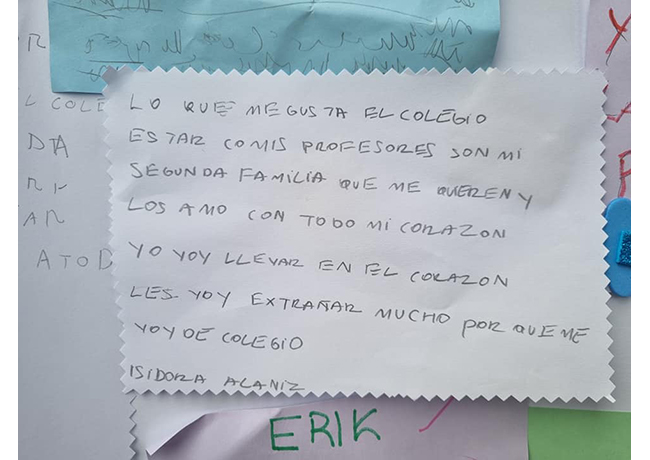 LO QUE ME GUSTA EL COLEGIO
ESTAR COMIS PROFESORES SON MI
SEGUNDA FAMILIA QUE ME QUEREN Y
LOS AMO CON TODO MI CORAZON
YO VOY LLEVAR EN EL CORAZON
LES VOY EXTRAÑAR MUCHO PORQUE ME
VOY DE COLEGIO
ISIDORA ALANIZ
ERIK